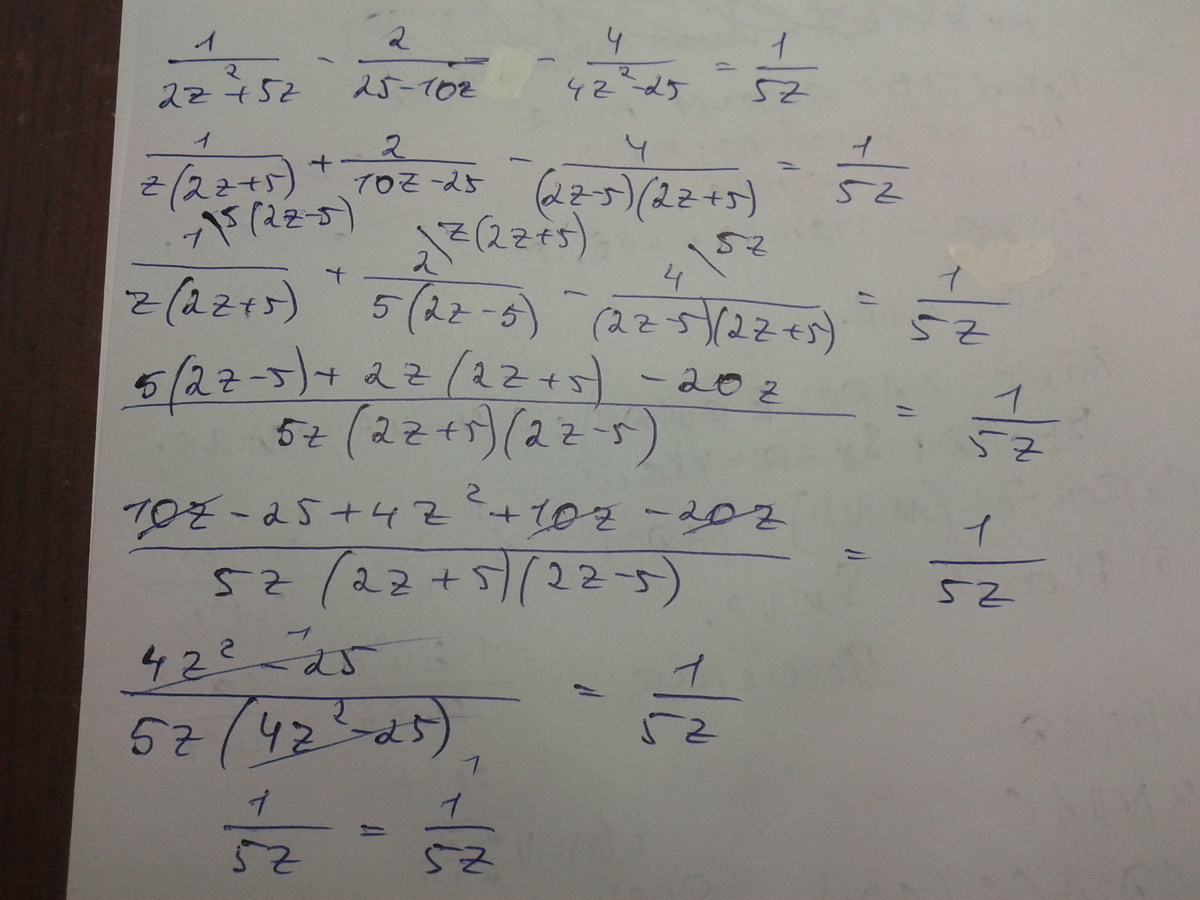 1/(2z²+5z) - 2/(25-10z) - 4/(4z²-25) = 1/(5z)
1/(z(2z+5)) + 2/(10z-25) - 4/((2z-5)(2z+5)) = 1/(5z)
1\5(2z-5) / (z(2z+5)) + 2\z(2z+5) / (5(2z-5)) - 4\5z / ((2z-5)(2z+5)) = 1/(5z)
(5(2z-5)+2z(2z+5)-20z) / (5z(2z+5)(2z-5)) = 1/(5z)
(10z-25+4z²+10z-20z) / (5z(2z+5)(2z-5)) = 1/(5z)
(4z²-25)¹ / (5z(4z²-25)₁) = 1/(5z)
1/(5z) = 1/(5z)